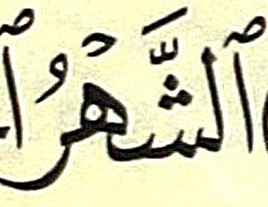 ٱلشَّهْرُ ٱ